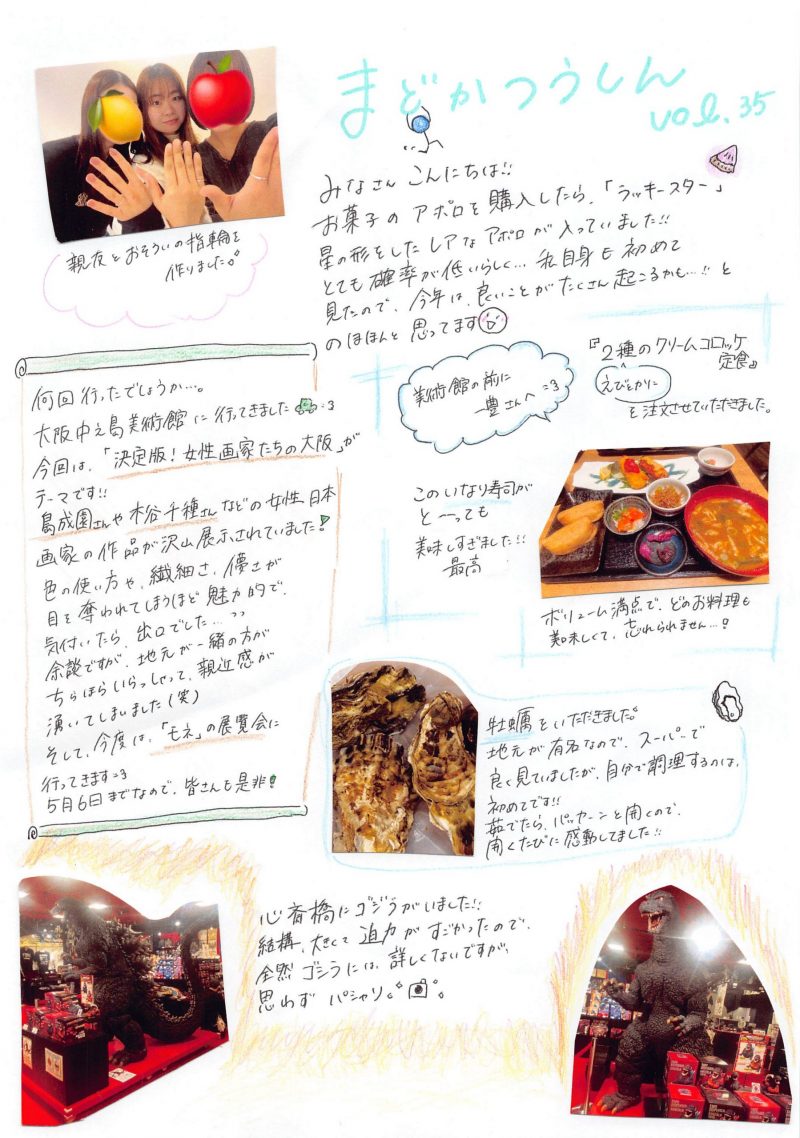 まどかつうしん
vol.35
みなさん こんにちは!!
お菓子の アポロを 購入したら、「ラッキースター」
星の形をした レアな アポロ が 入っていました!!
とても 確率が低いらしく… 私自身も 初めて
見たので、今年は、良いことが たくさん 起こるかも…!! と
のほほんと 思ってます
親友と おそろいの 指輪を
作りました。
何回 行ったでしょうか…。
大阪中之島美術館 に 行ってきました =3
今回は、「決定版! 女性画家たちの大阪」が
テーマです!!
島成園さんや 木谷千種さん などの 女性 日本
画家の 作品が 沢山 展示されていました!
色の使い方や、繊細さ、儚さが
目を 奪われてしまうほど 魅力的で、
気付いたら、出口でした…
余談ですが、地元が 一緒の方が
ちらほら いらっしゃって、親近感が
湧いてしまいました(笑)
そして、今度は、「モネ」の 展覧会に
行ってきます =3
5月6日までなので、皆さんも 是非!
美術館の前に
豊さんへ =3
『2種の クリームコロッケ
定食』
えびとかに
を 注文させていただきました。
この いなり寿司が
と〜っても
美味しすぎました!!
最高
ボリューム満点で、どのお料理も
美味しくて、忘れられません…!
牡蠣を いただきました。
地元が 有名なので、スーパーで
良く見ていましたが、自分で 調理するのは、
初めてです!!
茹でたら、パッカーンと 開くので、
開くたびに 感動してました!!
心斎橋に ゴジラがいました!!
結構、大きくて 迫力が すごかったので、
全然 ゴジラには、詳しくないですが、
思わず パシャリ